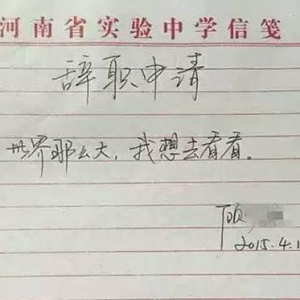 河南省实验中学信笺
辞职申请
世界那么大，我想去看看。
顾
2015.4.1